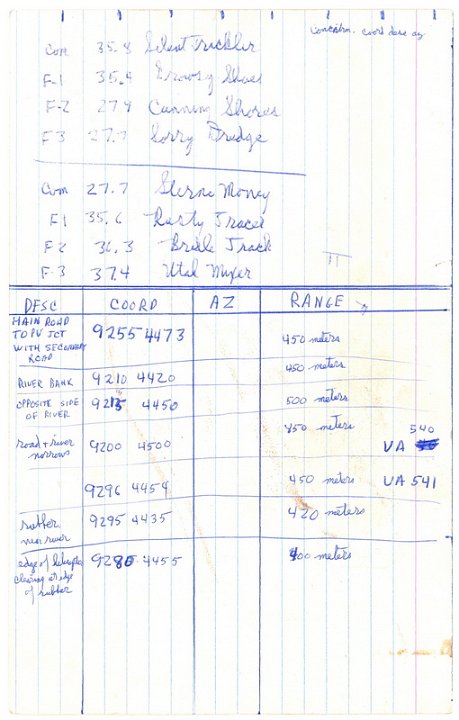 Concntrn. coord desc az
Com 35.8 Silent Trickler
F-1 35.4 Drowsy Shoes
F-2 27.9 Cunning Shores
F3 27.7 Sorry Drudge
Com 27.7 Sterne Money
F1 35.6 Rasty Tracer
F2 36.3 Bridle Track
F-3 37.4 Utah Mixer
DESC COORD AZ RANGE
MAIN ROAD
TO PV JCT 9255 4473
WITH SECONDARY 450 meters
ROAD
RIVER BANK 9210 4420 450 meters
OPPOSITE SIDE 4450 500 meters
OF RIVER
road + river 9200 4500 meters 540
narrows VA
9296 4454 450 meters VA 541
rubber 9295 4435 420 meters
near river
edge of 9280 4455 400 meters
clearing at edge
of rubber